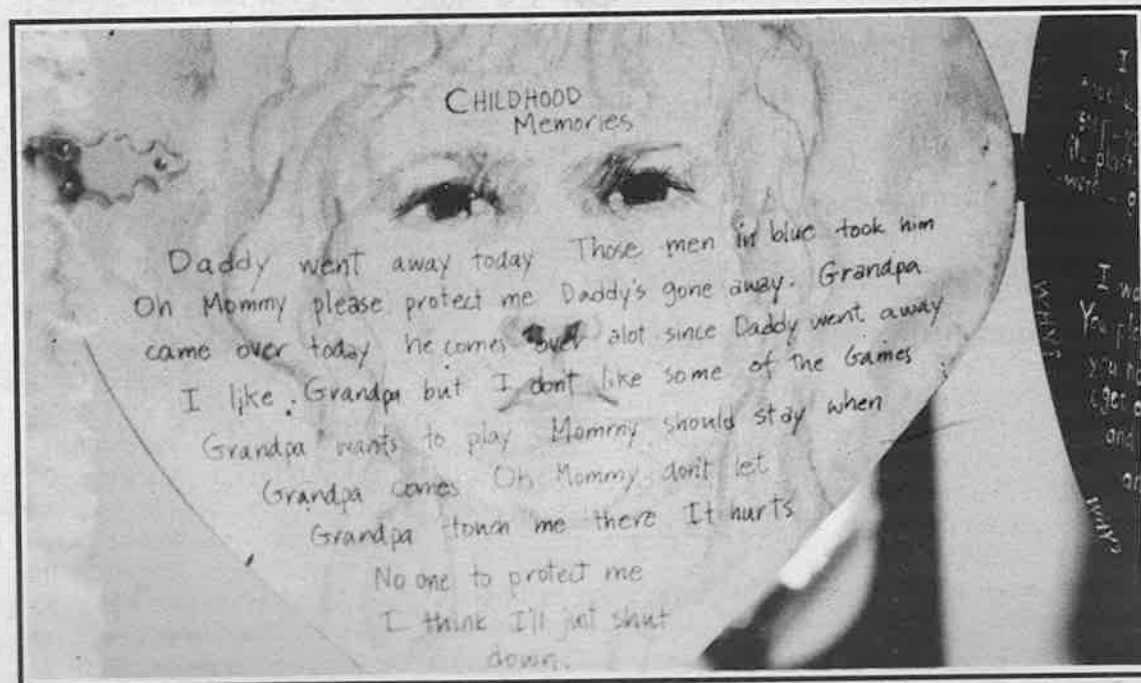 CHILDHOOD
Memories
Daddy went away today Those men in blue took him
Oh Mommy please protect me Daddy's gone away. Grandpa
came over today he comes over alot since Daddy went away
I like Grandpa but I don't like some of the Games
Grandpa wants to play Mommy should stay when
Grandpa comes Oh Mommy don't let
Grandpa touch me there It hurts
No one to protect me
I think I'll just shut
down.
I
I
You
and
WHY?
WHY?